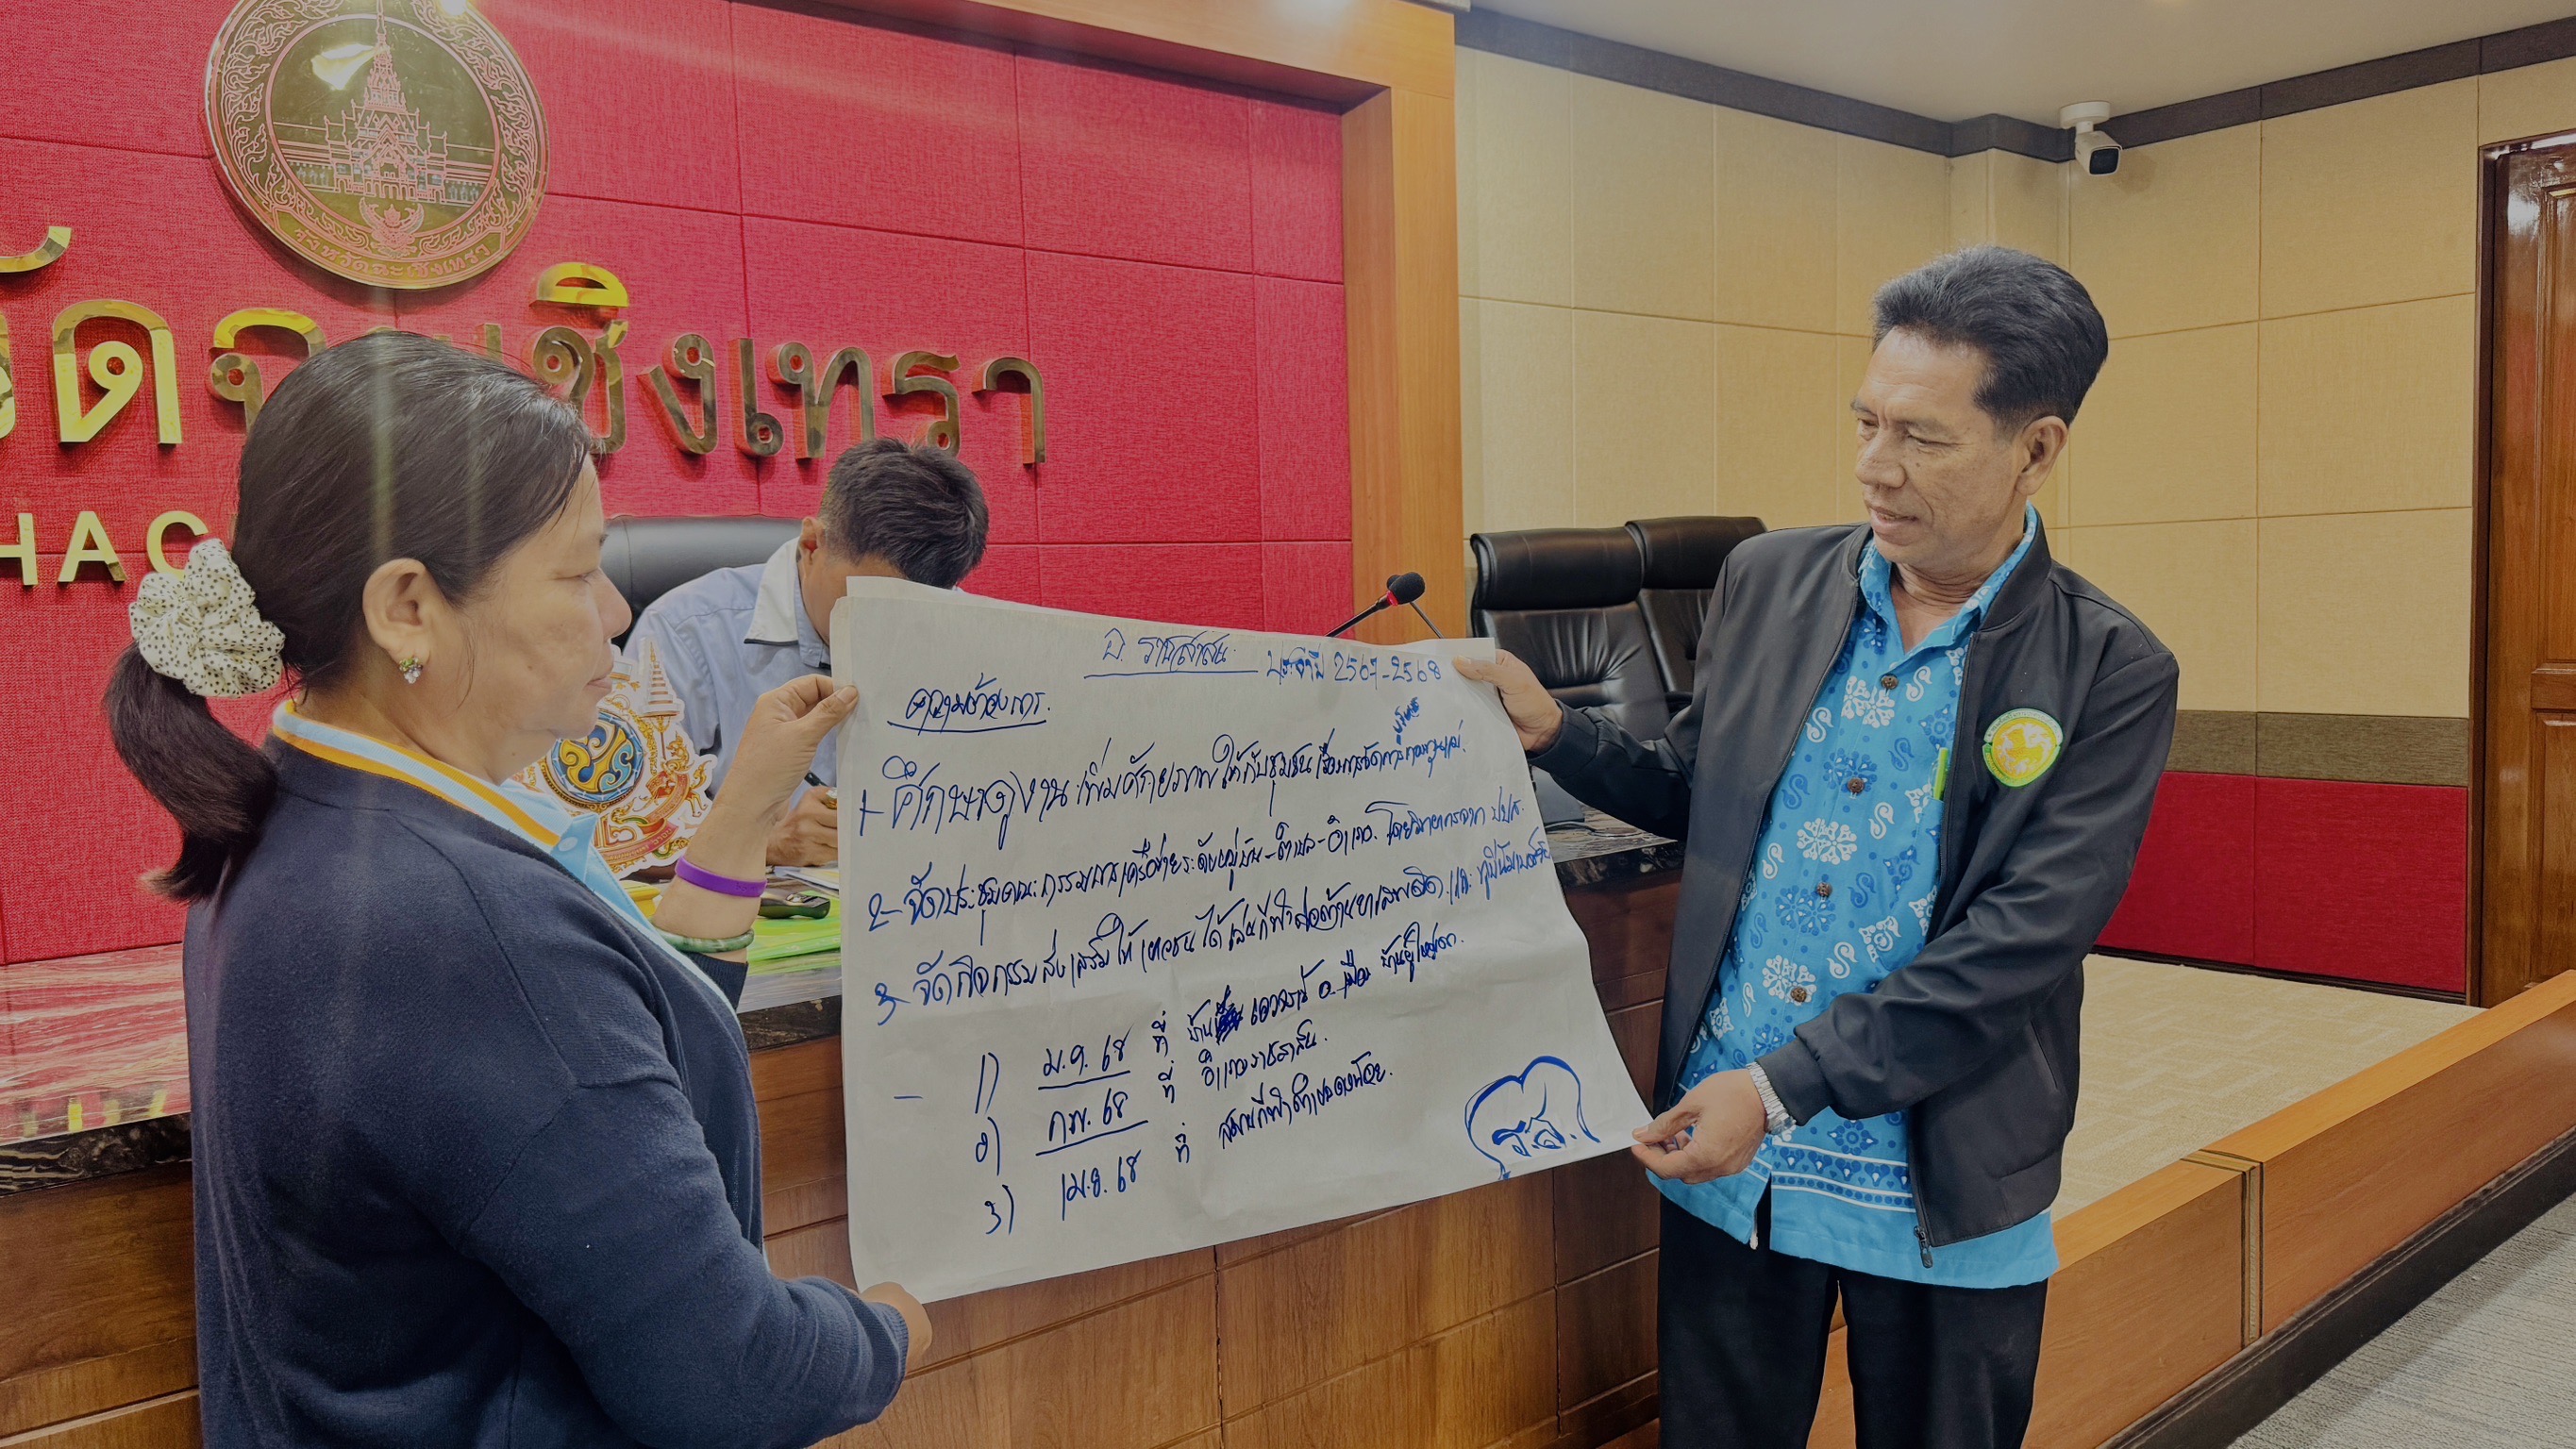 จังหวัดฉะเชิงเทรา
วัดฉะเชิงเทรา
HAC
อ. ราชสาส์น ประจำปี 2567-2568
ความต้องการ.
1- ศึกษาดูงาน เพิ่มศักยภาพให้กับชุมชน เรื่องการจัดการ
2- จัดประชุมคณะกรรมการเครือข่ายระดับหมู่บ้าน-ตำบล-อำเภอ. โดยวิทยากรจาก ปปส.
3- จัดกิจกรรมส่งเสริมให้เยาวชนได้เล่นกีฬาต่อต้านยาเสพติด. และ
1) ม.ค. 68 ที่ บ้าน
2) กพ. 68 ที่ อำเภอราชสาส์น.
3) เม.ย. 68 ที่ สนามกีฬาตำบลดงน้อย.
ร.ส.